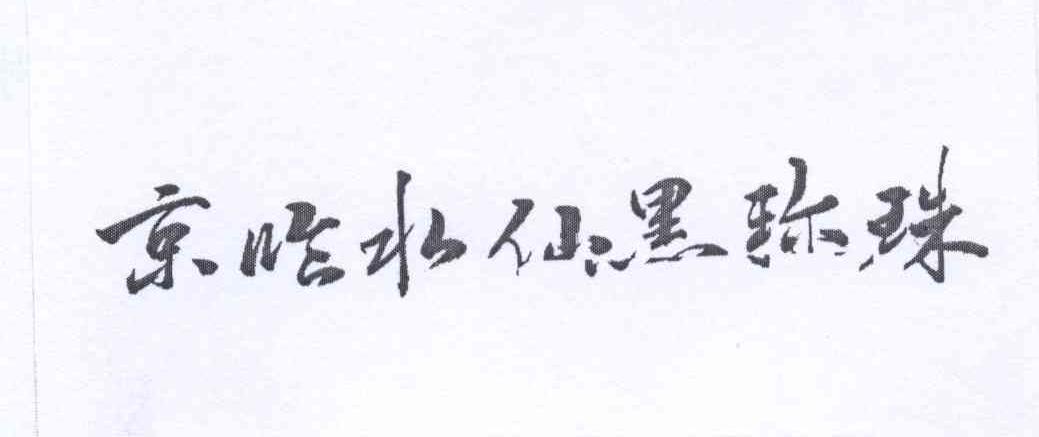 京哈水仙黑珍珠